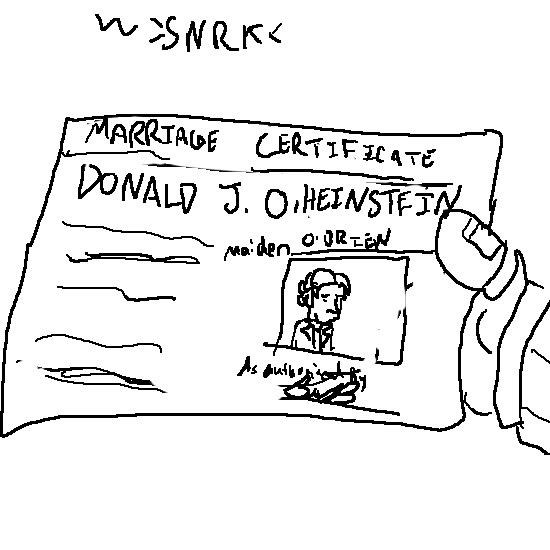 >SNRK<
MARRIAGE CERTIFICATE
DONALD J. O'HEINSTEIN
maiden O'BRIEN
As authorized by